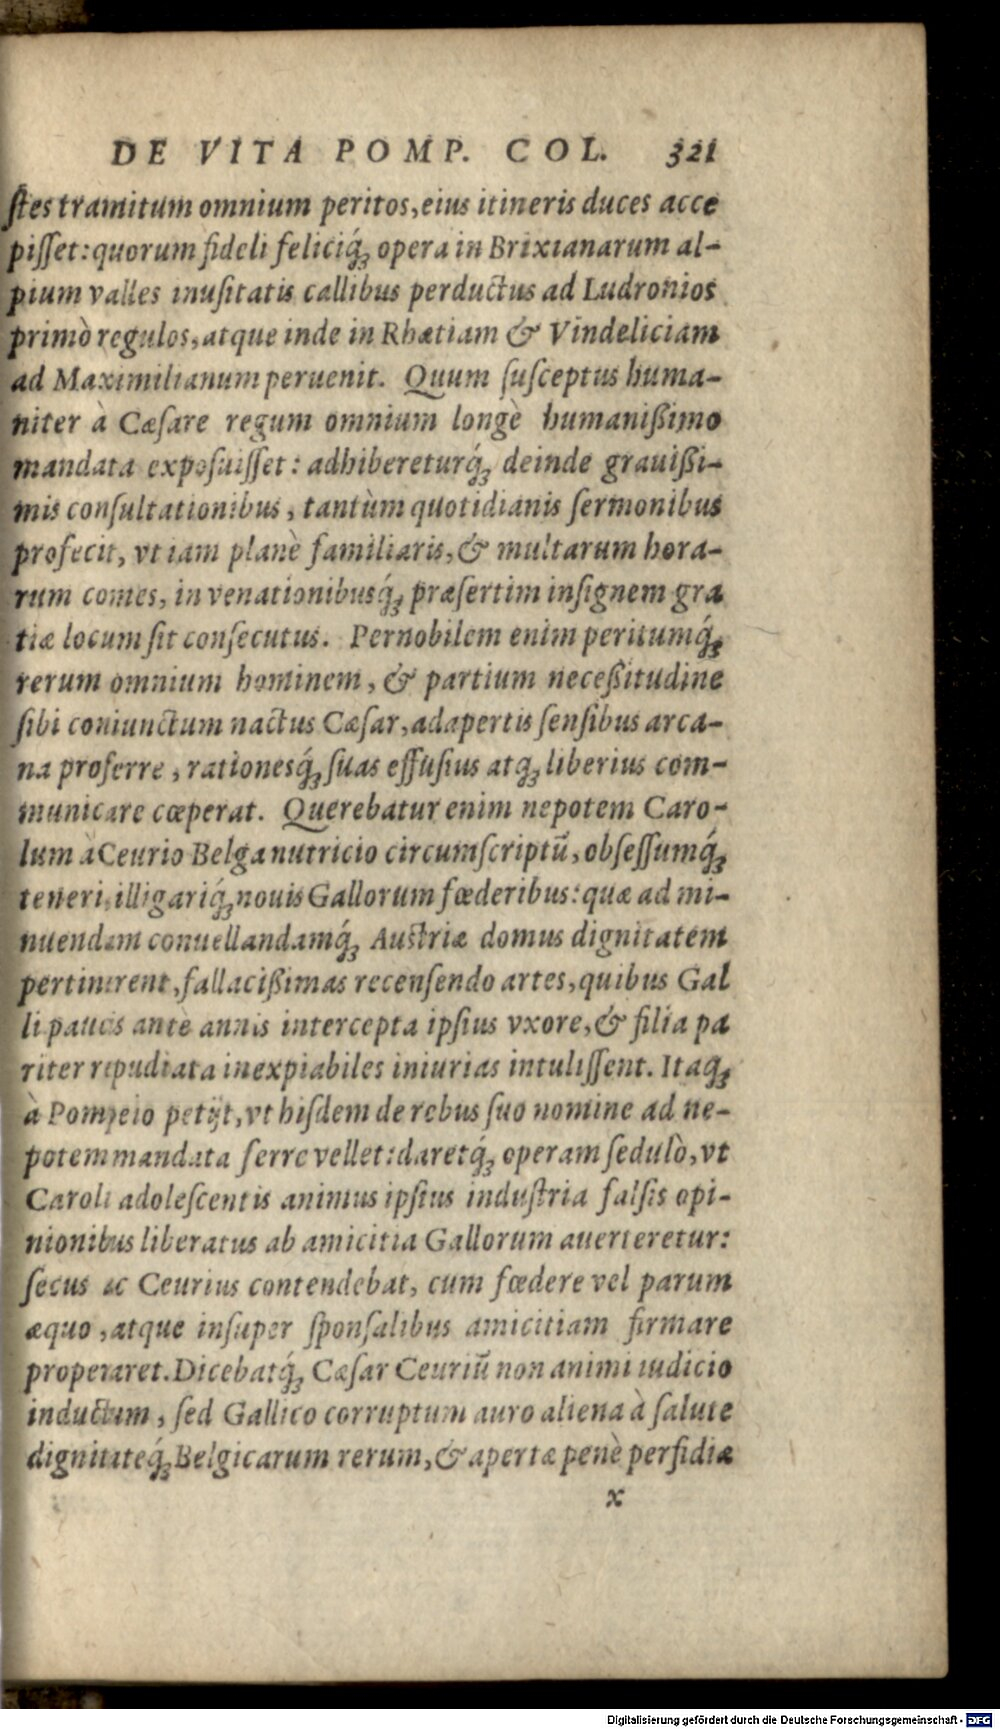 DE VITA POMP. COL. 321
ſtes tramitum omnium peritos, eius itineris duces acce
piſſet: quorum fideli feliciq́ꝫ opera in Brixianarum al-
pium valles inuſitatis callibus perductus ad Ludronios
primò regulos, atque inde in Rhætiam & Vindeliciam
ad Maximilianum peruenit. Quum ſuſceptus huma-
niter à Cæſare regum omnium longè humanißimo
mandata expoſuiſſet: adhibereturq́ꝫ deinde grauißi-
mis conſultationibus, tantùm quotidianis ſermonibus
profecit, vt iam planè familiaris, & multarum hora-
rum comes, in venationibusq́ꝫ præſertim inſignem gra
tiæ locum ſit conſecutus. Pernobilem enim peritumq́ꝫ
rerum omnium hominem, & partium neceßitudine
ſibi coniunctum nactus Cæſar, adapertis ſenſibus arca-
na proferre, rationesq́ꝫ ſuas effuſius atqꝫ liberius com-
municare cœperat. Querebatur enim nepotem Caro-
lum à Ceurio Belga nutricio circumſcriptū, obſeſſumq́ꝫ
teneri, illigariq́ꝫ nouis Gallorum fœderibus: quæ ad mi-
nuendam conuellandamq́ꝫ Auſtriæ domus dignitatem
pertinerent, fallacißimas recenſendo artes, quibus Gal
li paucis antè annis intercepta ipſius vxore, & filia pa
riter repudiata inexpiabiles iniurias intuliſſent. Itaqꝫ
à Pompeio petijt, vt hiſdem de rebus ſuo nomine ad ne-
potem mandata ferre vellet: daretq́ꝫ operam ſedulò, vt
Caroli adoleſcentis animus ipſius induſtria falſis opi-
nionibus liberatus ab amicitia Gallorum auerteretur:
ſecus ac Ceurius contendebat, cum fœdere vel parum
æquo, atque inſuper ſponſalibus amicitiam firmare
properaret. Dicebatq́ꝫ Cæſar Ceuriū non animi iudicio
inductum, ſed Gallico corruptum auro aliena à ſalute
dignitateq́ꝫ Belgicarum rerum, & apertæ penè perfidiæ
x
Digitalisierung gefördert durch die Deutsche Forschungsgemeinschaft - DFG